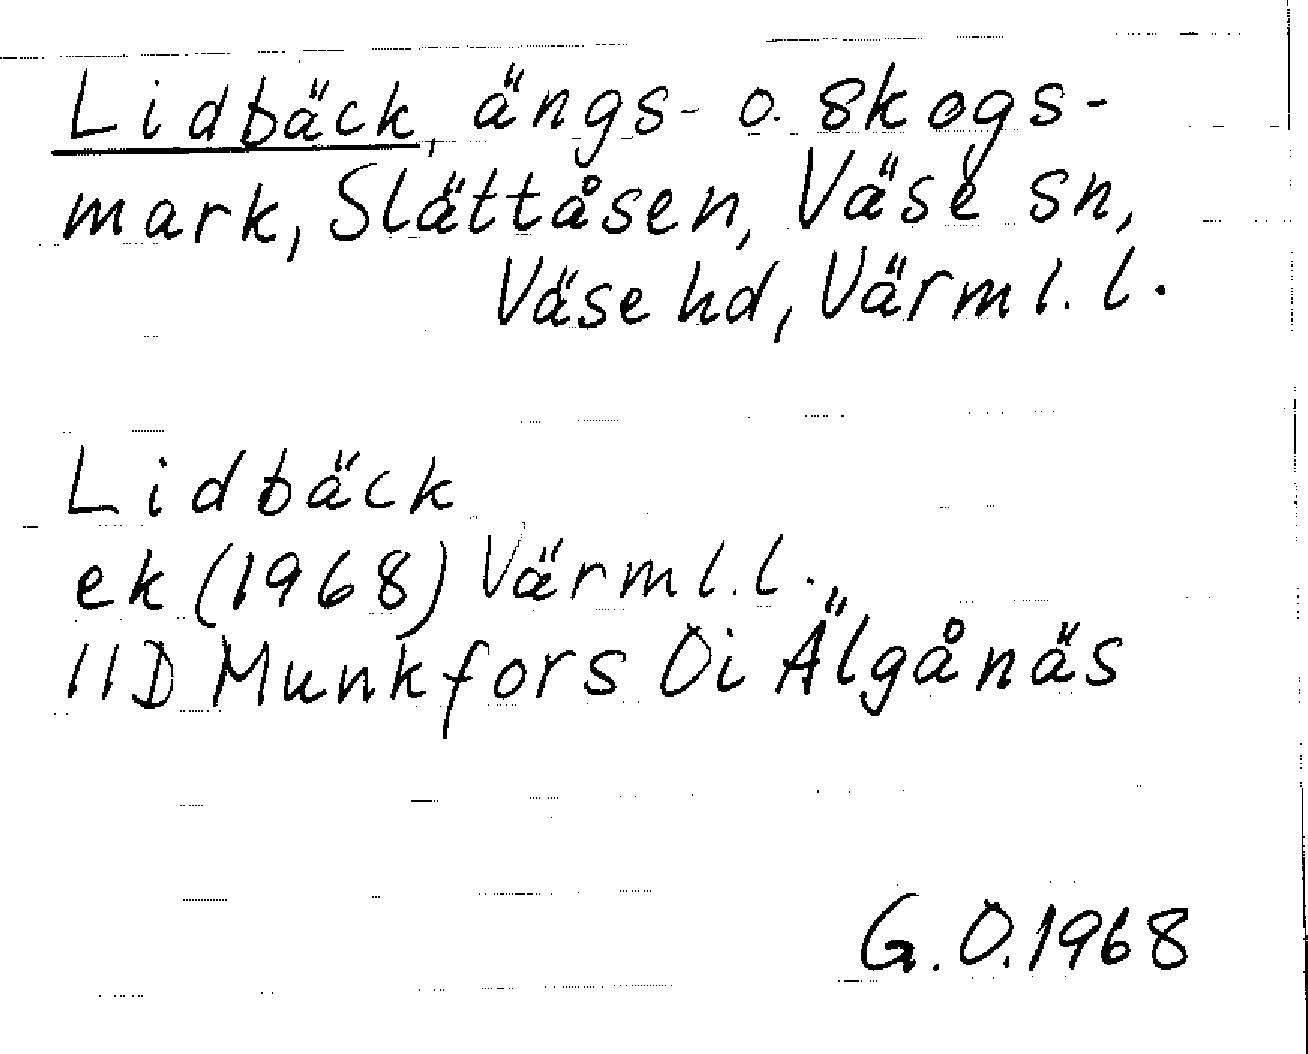 Lidbäck, ängs- o. skogs-
mark, Slättåsen, Väse sn,
Väse hd, Värml. l.
Lidbäck
ek (1968) Värml. l.
11D Munkfors Oi Älgånäs
G. O. 1968